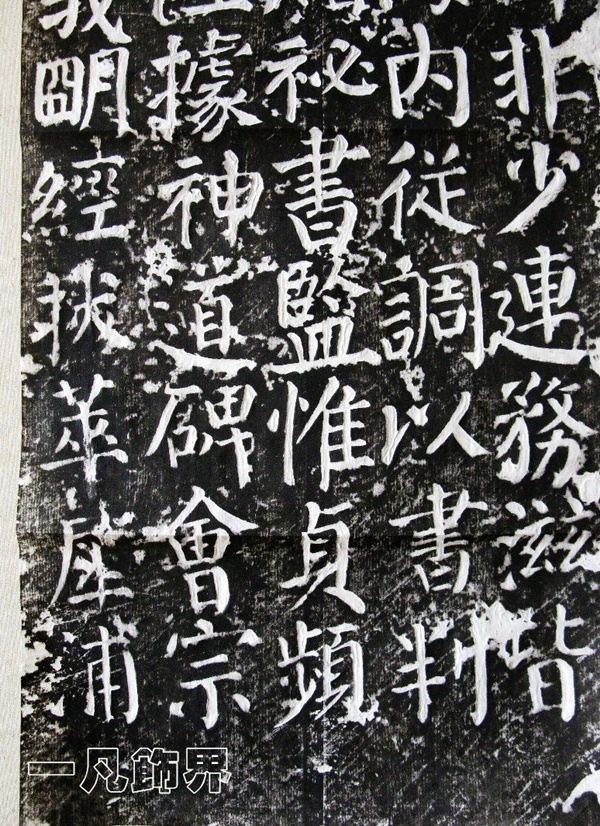 非少連務滋皆
内從調以書判
祕書監惟貞頻
據神道碑會宗
眀經拔萃犀浦
一凡飾界